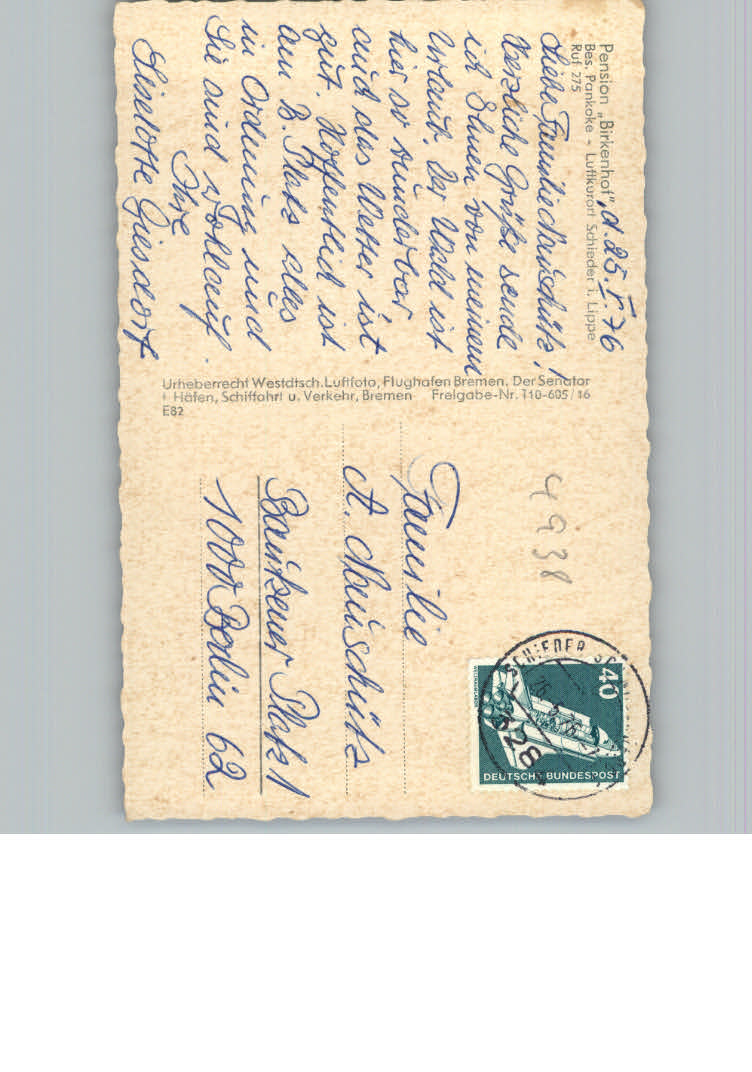 Pension „Birkenhof"
Bes. Pankoke - Luftkurort Schieder i. Lippe
Ruf 275
d. 25. V. 76
Liebe Familie Neuschütz!
Herzliche Grüße sende
ich Ihnen von meinem
Urlaub. Der Wald ist
hier so wunderbar
auch das Wetter ist
gut. Hoffentlich ist
am B. Platz alles
in Ordnung und
Sie sind wohlauf.
Ihre
Liselotte Giesdorf
Urheberrecht Westdtsch. Luftfoto, Flughafen Bremen. Der Senator
f. Häfen, Schiffahrt u. Verkehr, Bremen Freigabe-Nr. 110-605/16
E82
4938
Familie
A. Neuschütz
Bautzener Platz 1
1000 Berlin 62
SCHIEDER
328
40
DEUTSCHE BUNDESPOST